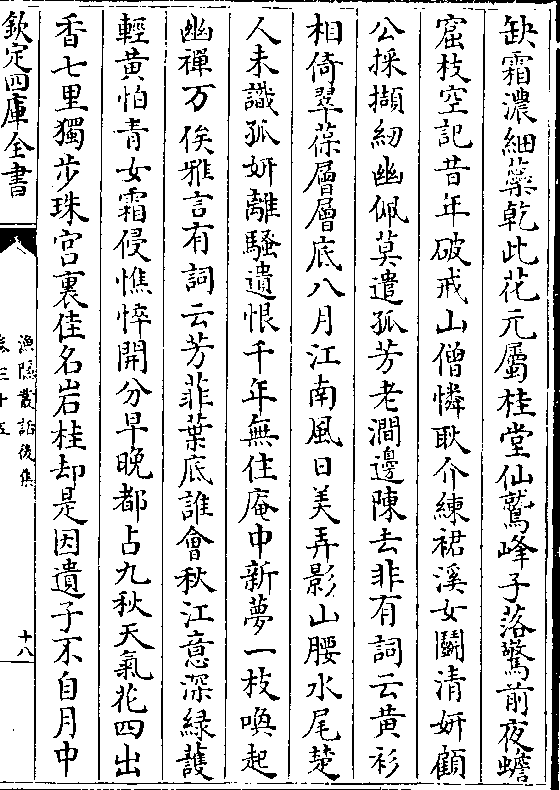 缺霜濃細蘂乾此花元屬桂堂仙鷲峰子落驚前夜蟾
窟枝空記昔年破戒山僧憐耿介練裙溪女鬭清妍顧
公採擷紉幽佩莫遣孤芳老澗邊陳去非有詞云黄衫
相倚翠葆層層底八月江南風日美弄影山腰水尾楚
人未識孤妍離騷遺恨千年無住庵中新夢一枝喚起
幽禪万俟雅言有詞云芳菲葉底誰會秋江意深緑䕶
輕黄怕青女霜侵憔悴開分早晚都占九秋天氣花四出
香七里獨步珠宫裏佳名岩桂却是因遺子不自月中
欽定四庫全書
漁隱叢話後集
卷三十五
十八